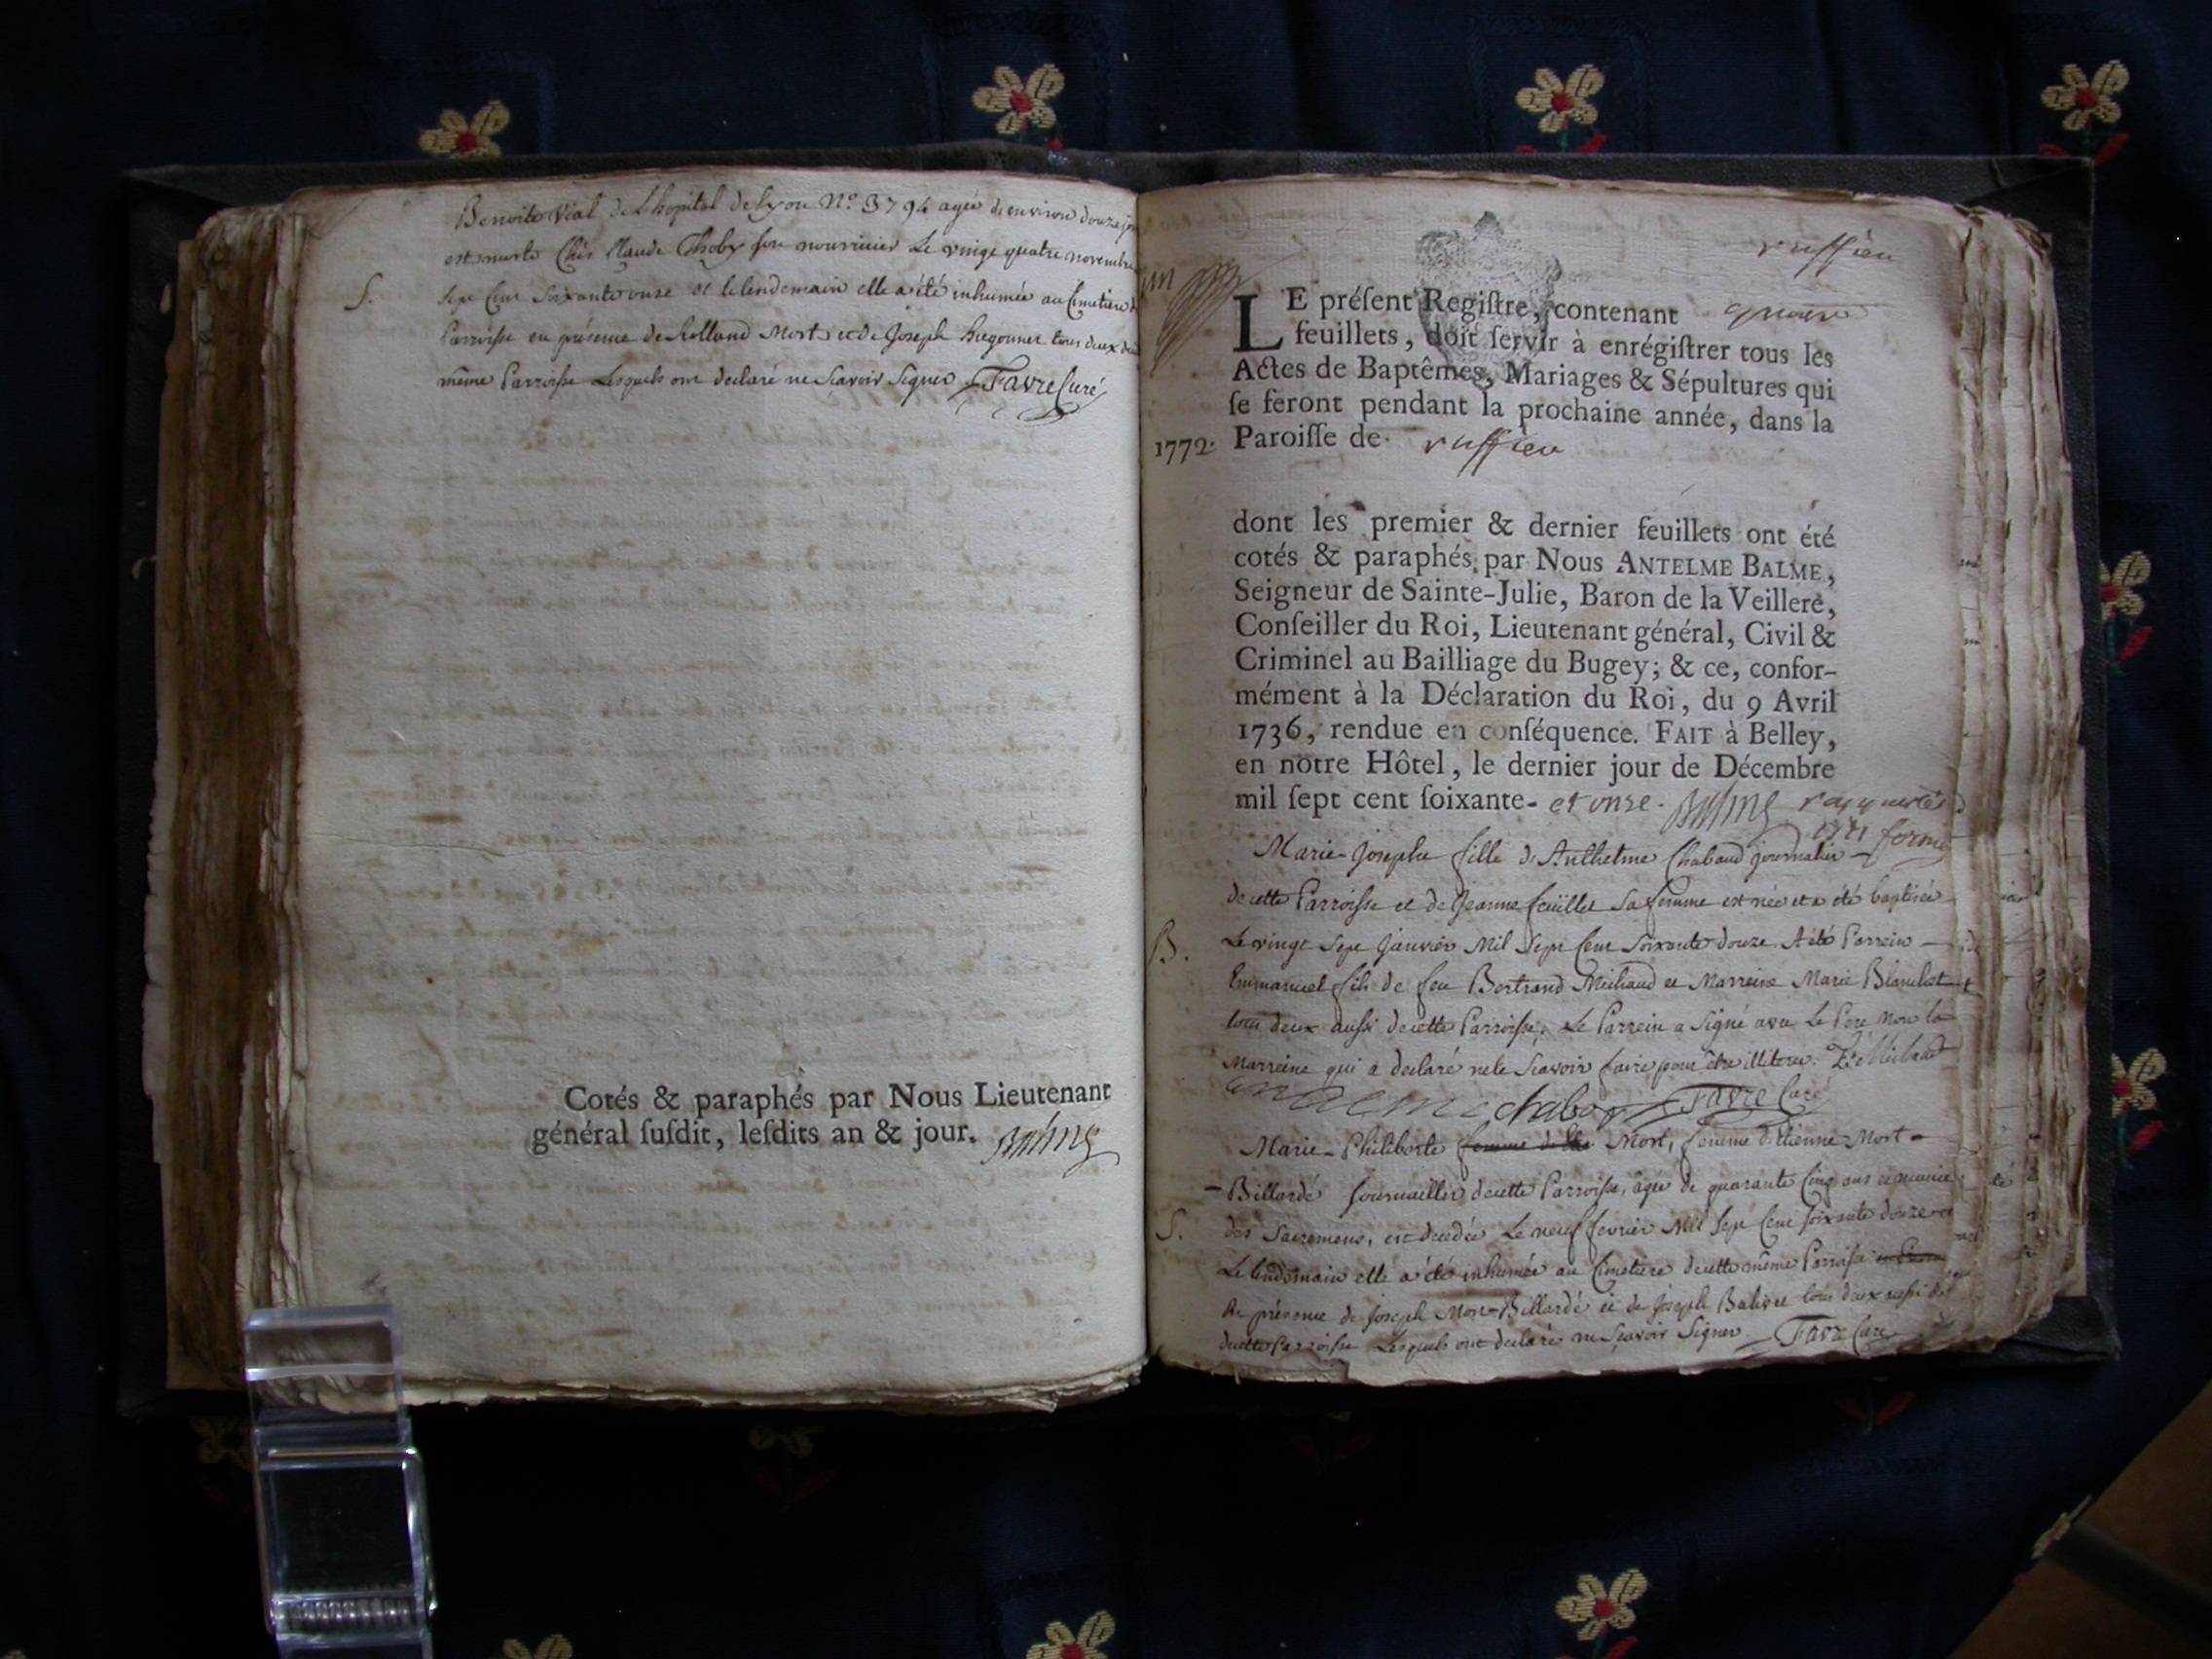 Benoite Vial de L'hopital de Lyon N.º 3794 agée d'environ douze
est morte Chés Claude Thoby son nourricier Le vingt quatre novembre
S.
sept Cent soixante onze et le lendemain elle a été inhumée au Cimetiere
Parroisse en présence de Rolland Mort et de Joseph hugonner tous deux
même Parroisse Lesquels ont declaré ne Scavoir Signer Favre Curé
Cotés & paraphés par Nous Lieutenant
général ſuſdit, leſdits an & jour. Balme
ruffieu
LE préſent Regiſtre, contenant
feuillets, doit ſervir à enrégiſtrer tous les
Actes de Baptêmes, Mariages & Sépultures qui
ſe feront pendant la prochaine année, dans la
1772. Paroiſſe de ruffieu
dont les premier & dernier feuillets ont été
cotés & paraphés par Nous ANTELME BALME,
Seigneur de Sainte-Julie, Baron de la Veillere,
Conſeiller du Roi, Lieutenant général, Civil &
Criminel au Bailliage du Bugey; & ce, confor-
mément à la Déclaration du Roi, du 9 Avril
1736, rendue en conſéquence. FAIT à Belley,
en notre Hôtel, le dernier jour de Décembre
mil ſept cent ſoixante- et onze. Balme
Marie-Josephe fille d'Anthelme Chabaud journalier
de cette Parroisse et de Jeanne feüillet Sa femme est née et a été baptisée
B.
Le vingt Sept Janvier Mil Sept Cent Soixante douze. A été Parrein
Emmanuel fils de feu Bertrand Michaud et Marreine Marie Blanchet
tous deux aussi de cette Parroisse. Le Parrein a Signé avec Le Pere Non la
Marreine qui a declaré ne le Scavoir faire pour être illiterée. E Michaud
chabo Favre Curé
Marie-Philiberte femme de Mort, femme d'Etienne Mort
Billardé Journaillier de cette Parroisse, agée de quarante Cinq ans et munie
S.
des Sacremens, est decedée Le neuf fevrier Mil Sept Cent soixante douze et
Le lendemain elle a été inhumée au Cimetiere de cette même Parroisse
En présence de Joseph Mort-Billardé et de Joseph Balivet tous deux aussi
de cette Parroisse Lesquels ont declaré ne Scavoir Signer. Favre Curé